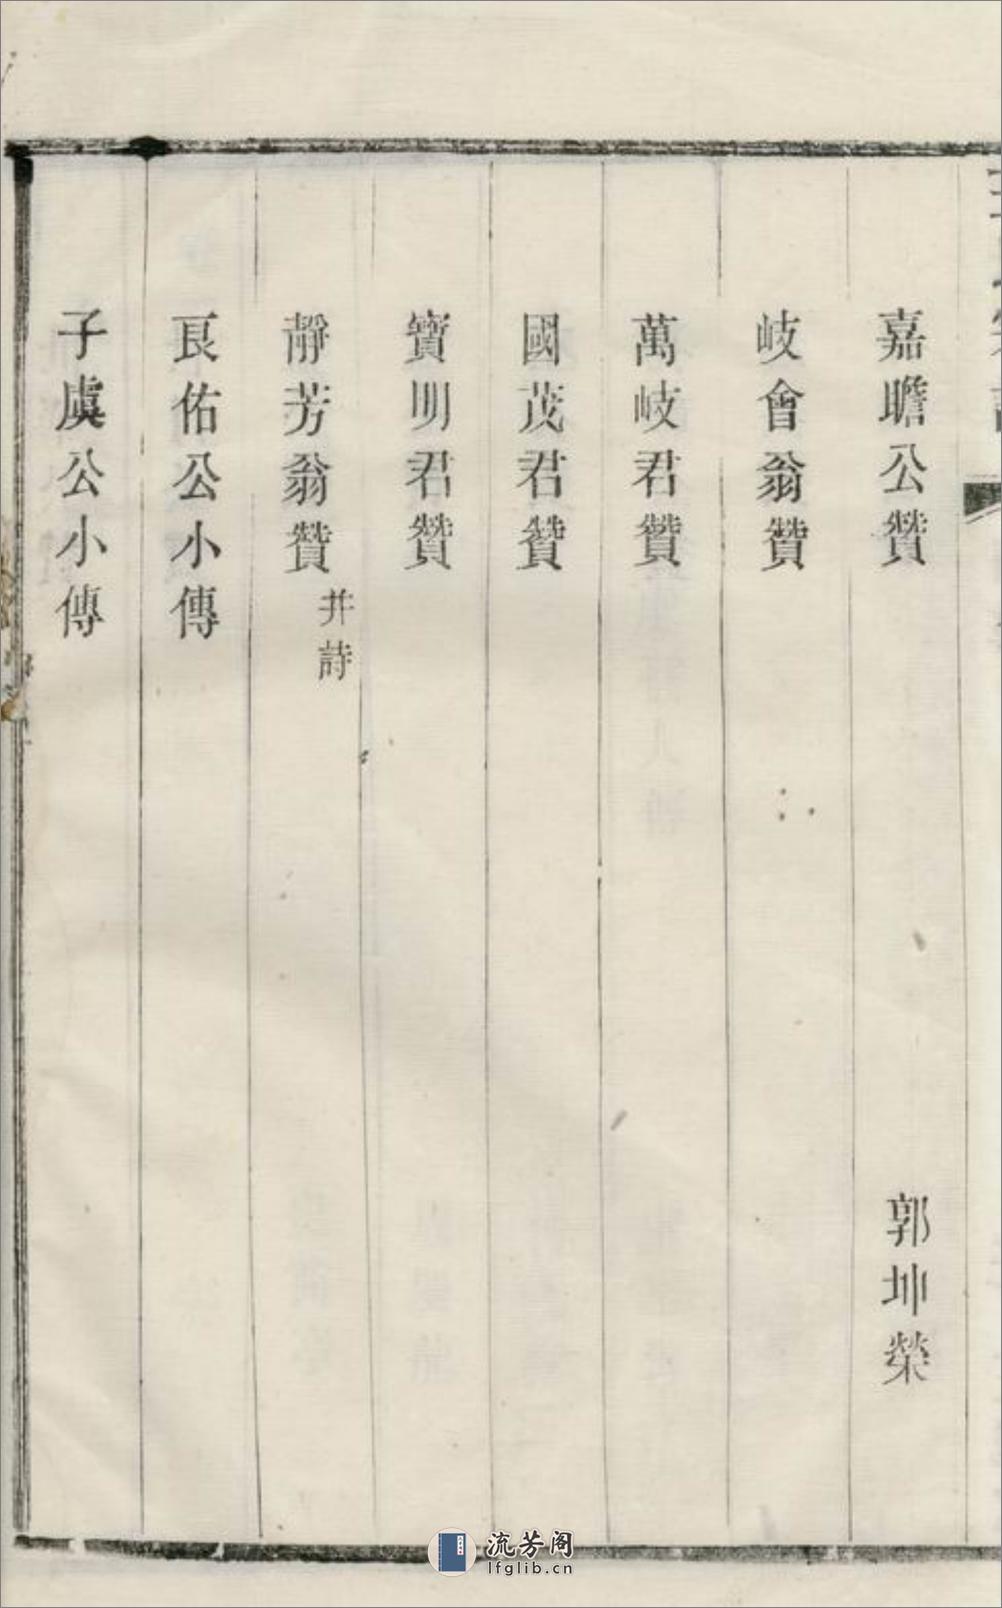 嘉瞻公贊 郭坤榮
岐會翁贊
萬岐君贊
國茂君贊
寶明君贊
靜芳翁贊 并詩
良佑公小傳
子虞公小傳
流芳阁
lfglib.cn